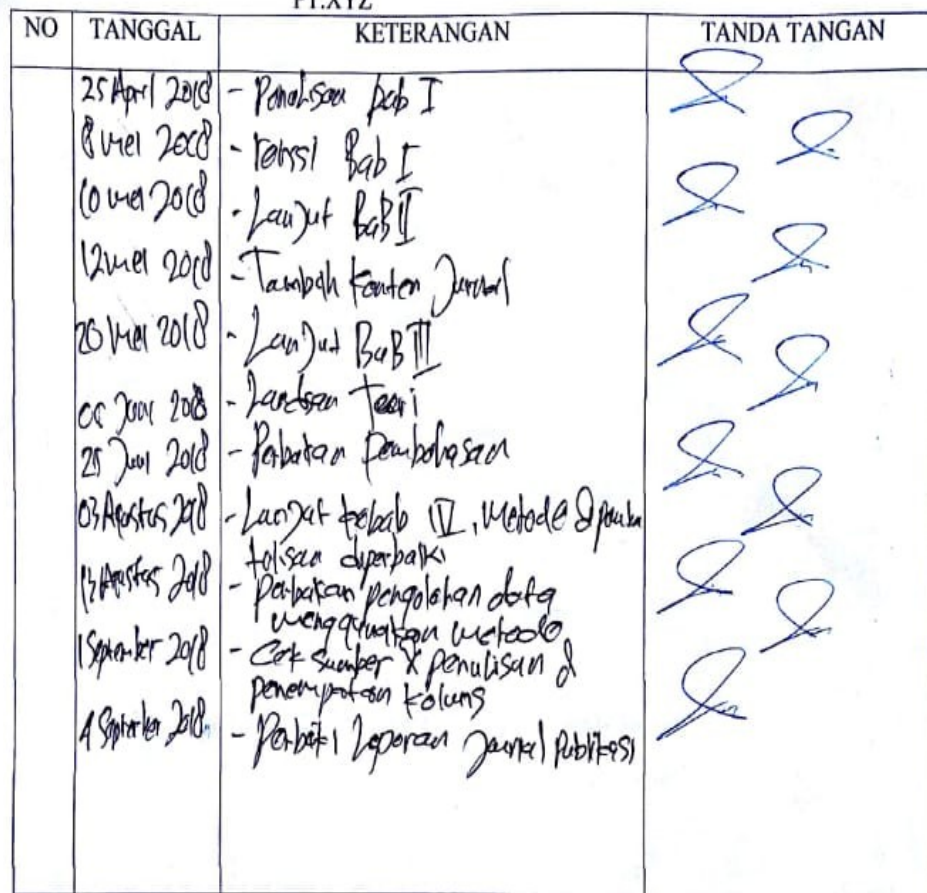 PT.XYZ
NO TANGGAL KETERANGAN TANDA TANGAN
25 April 2018 - Penulisan bab I
8 Mei 2018 - revisi Bab I
10 Mei 2018 - Lanjut BaB II
12 Mei 2018 - Tambah Konten Jurnal
20 Mei 2018 - Lanjut BaB III
Juni 2018 - Landasan Teori
25 Juni 2018 - Perbaikan Pembahasan
03 Agustus 2018 - Lanjut kebab IV, Metode &
tulisan diperbaiki
13 Agustus 2018 - Perbaikan pengolahan data
menggunakan metode
1 September 2018 - Cek sumber x penulisan &
penempatan kolums
4 September 2018 - Perbaiki Laporan Jurnal Publikasi